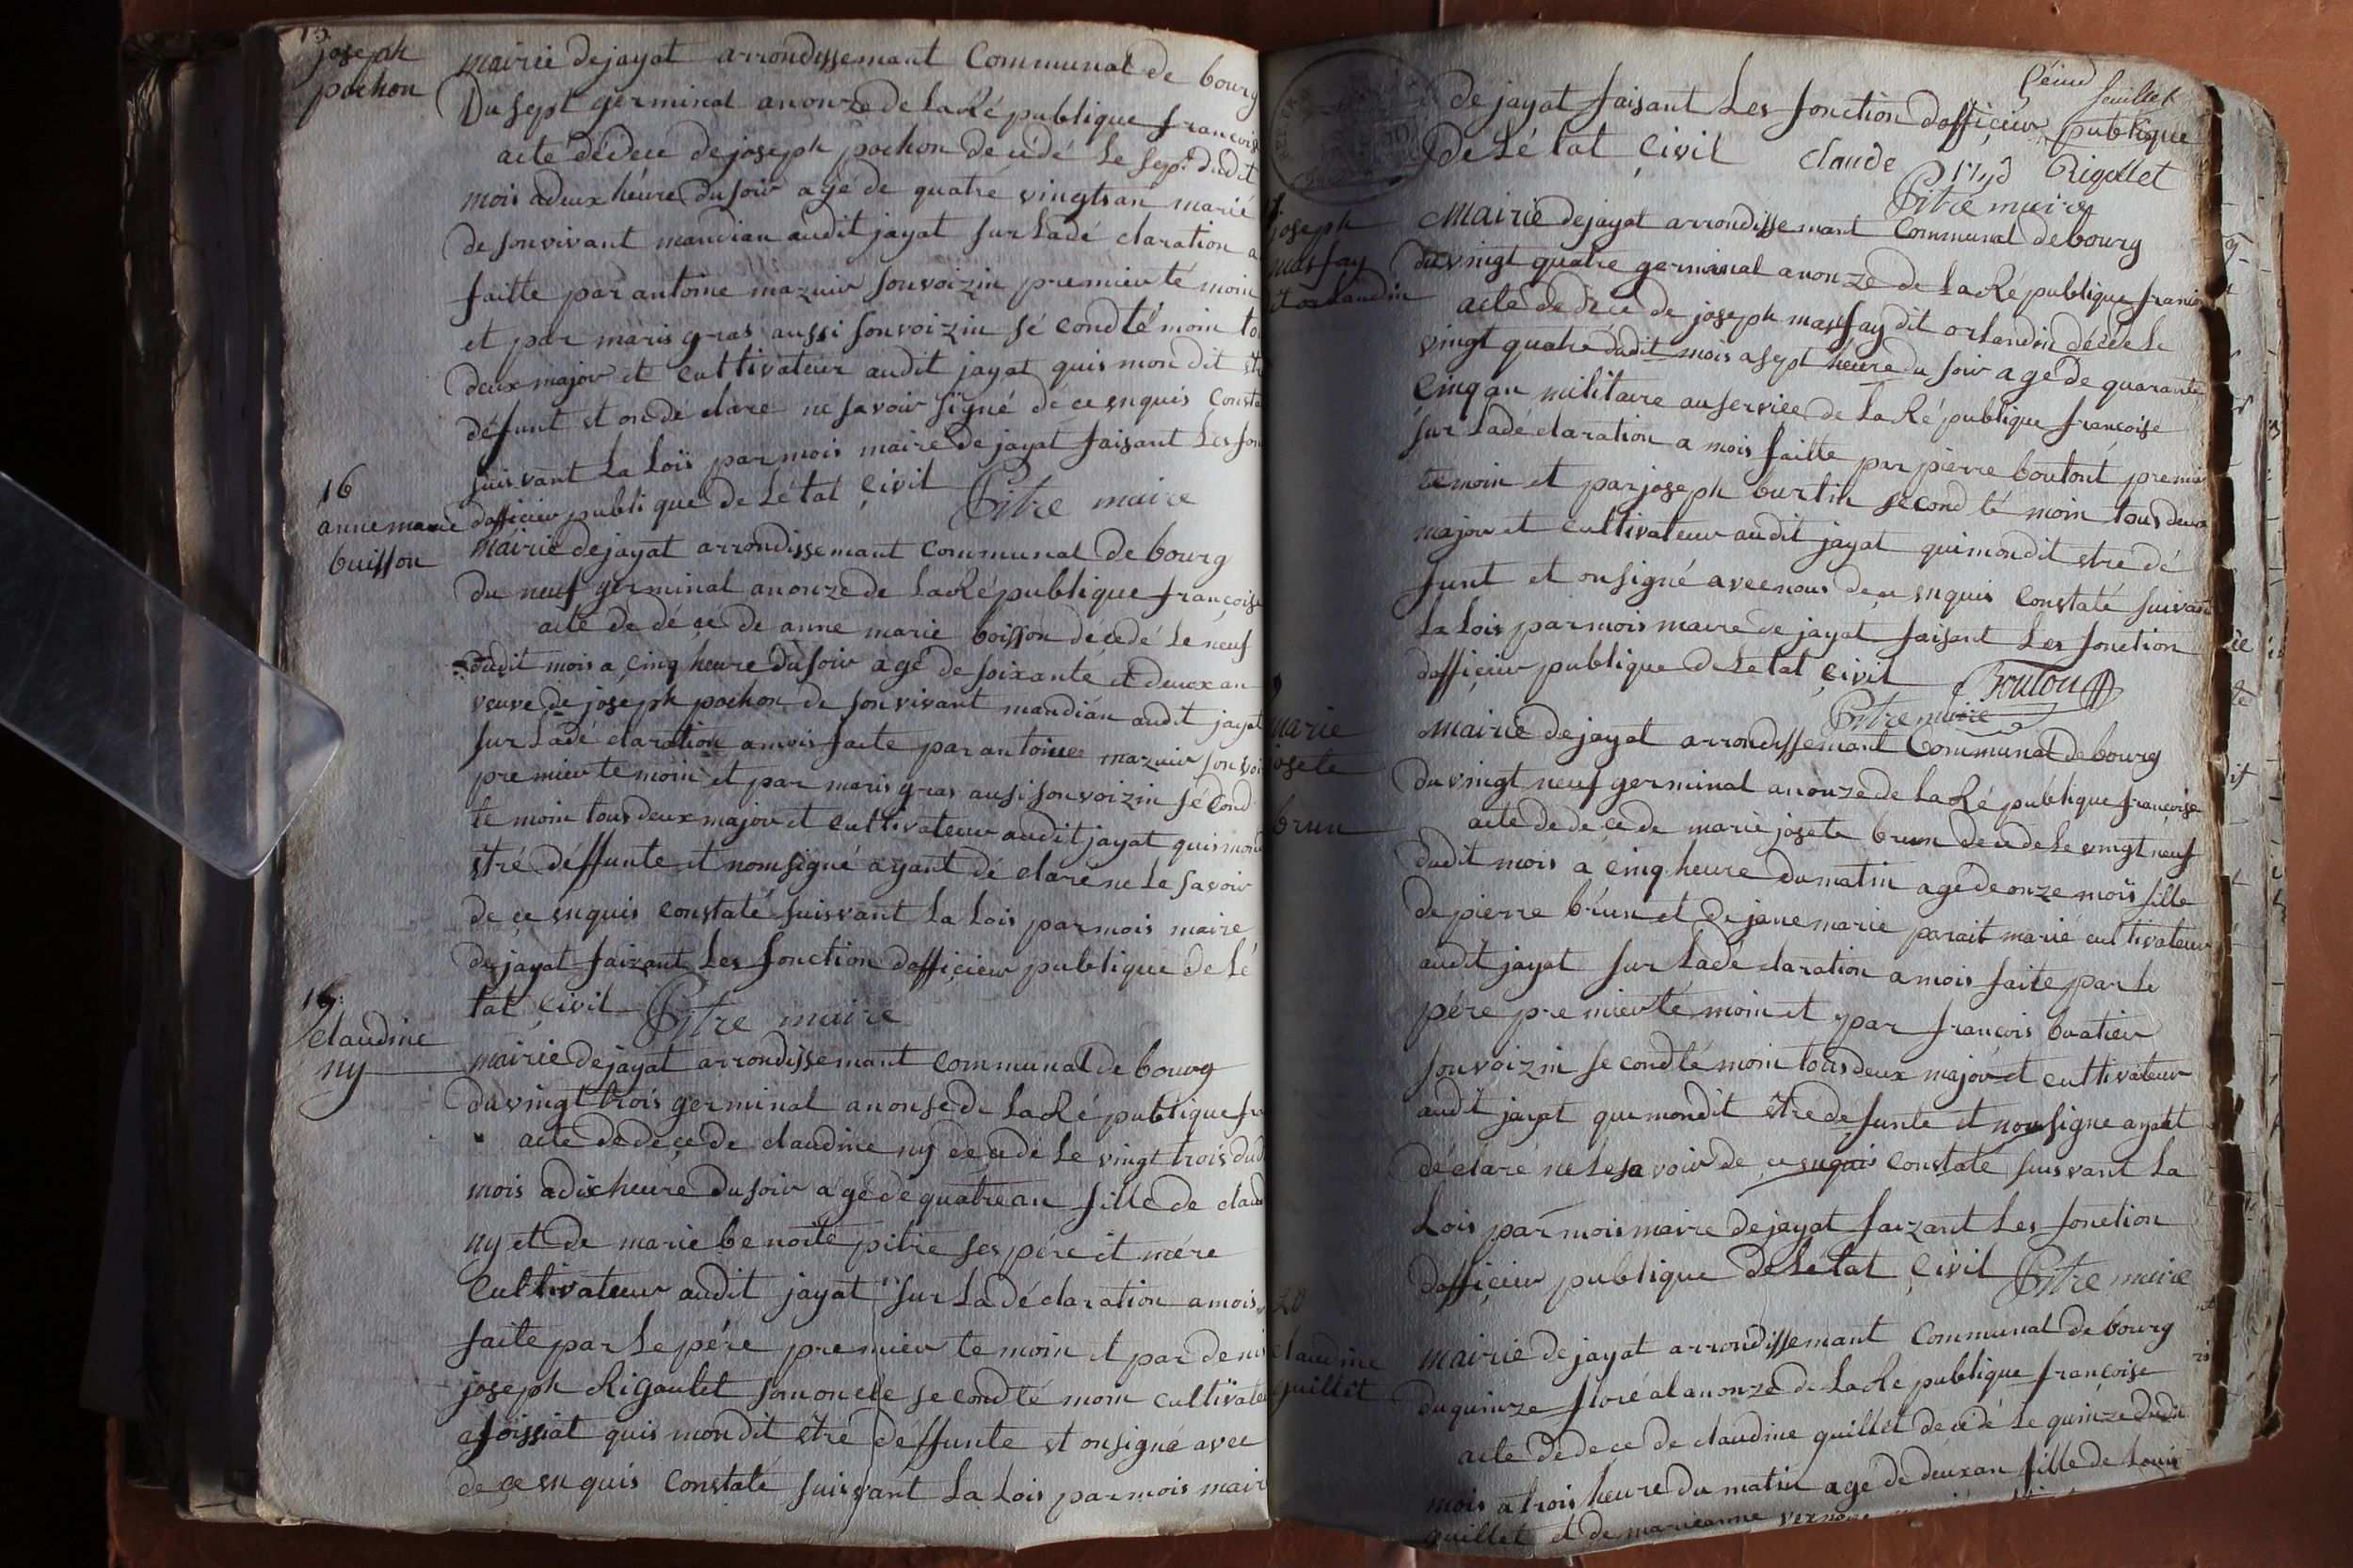 15
joseph
pochon
mairie dejayat arrondissemant Communal de bourg
Du sept germinal anonze de LaRé publique francois
acte dedece dejoseph pochon decedé Le sept dudit
mois adeux héure Dusoir agé de quatre vingtsan marié
de sonvivant mandian audit jayat sur Ladé claration a
faitte par antoine mazuir sonvoizin premieu té moin
et par maris gras aussi sonvoizin sé condté moin to
deux major et cultivateur audit jayat quis mon dit etr
défunt et ondé clare ne savoir signé de ce enquis Consta
suis vant La Lois par mois maire de jayat faisant Les fon
dofficieu publique de Létat Civil Pitre maire
16
anne marie
buisson
mairie dejayat arrondissemant communal De bourg
du neuf germinal anonze de LaRépublique françoise
acte de dé ce de anne marie boisson décedé Le neuf
dudit mois a cinq heure Dusoir agé de soixante et deux an
veuve de joseph pochon de son vivant mandián audit jayat
sur Ladé claration amois faite par antoine mazuir son voi
premieu temoin et par maris gras ausi sonvoizin sé Cond
te moin tous deux major et cultivateur audit jayat quis mon
étré déffunte et nomsigné ayant dé claré ne Le savoir
de ce enquis constaté suisvant La Lois parmois maire
de jayat faizant Les fonction dofficieu publique de Lé
tat Civil Pitre maire
claudine
ny
mairie dejayat arrondissemant communal de bourg
du vingt trois germinal anonse de LaRé publique fra
acte de dece de claudine ny decedé Le vingt trois dud
mois a dix heure dusoir agé de quatre an fille de claud
ny et de marie benoite pitre ses pére et mére
cultivateur audit jayat sur La dé claration amois
faite par Le pére premieu te moin et par deni
joseph Rigaulet son oncle se condté moin cultivateu
afoissiat quis mondit étre déffunte et onsigné avec
de ce en quis constaté suisvant La Lois parmois mair
feuillet
de jayat faisant Les fonction dofficieu publique
de Lé tat Civil claude Nyd Rigollet
Pitre maire
joseph
masfay
dit orlandin
Mairie dejayat arrondissemant Communal debourg
du vingt quatre germinal anonze de LaRé publique francoi
acte de dece de joseph masfay dit orlandin décédé Le
vingt quatre dudit mois asept heure du soir agé de quarante
Cinq an militaire auservice de La Ré publique françoise
sur Ladé claration a mois faitte par pierre boutont premieu
temoin et parjoseph burtin second té moin tous deux
major et cultivateur audit jayat quimondit etre dé
funt et onsigné avec nous de ce enquis Constaté suivant
La Lois parmois maire de jayat faisant Les fonction
dofficieu publique de Letat Civil Bouton
Pitre maire
marie
josete
brun
Mairie dejayat arrondissemant Communal debourg
du vingt neuf germinal anonzede LaRé publique françoise
acte de dece de marie josete brun decede Le vingt neuf
dudit mois a cinq heure dumatin agé de onze mois fille
de pierre brun et de jane marie parait marié cultivateur
audit jayat sur Ladé claration a mois faite par Le
pére premieu té moin et par francois buatieu
sonvoizin se condté moin tous deux major et cultivateur
audit jayat qui mondit étre defunte et nonsigne ayant
déclaré ne Lesa voir de ce enquis constaté suisvant La
Lois par mois maire dejayat faizant Les fonction
dofficieu publique de Létat Civil Pitre maire
20
claudine
guillet
mairie dejayat arrondissemant communal debourg
du quinze floré al anonze de LaRé publique françoise
acte de dece de claudine guillet decédé Le quinze dudit
mois a trois heure du matin agé de deux an fille de Louis
guillet et de marieanne